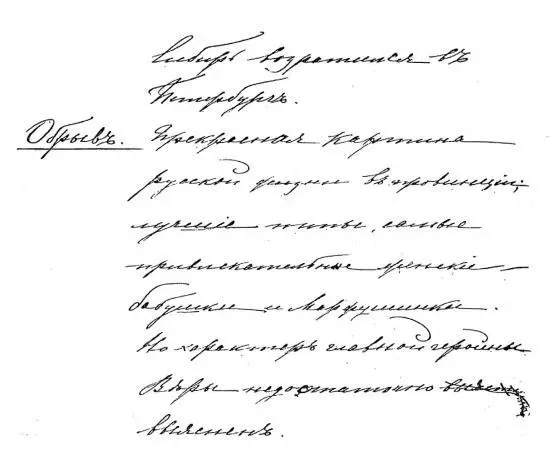 Сибирь возратился въ
Петербургъ.
Обрывъ. Прекрасная картина
руской жизни въ провинціи;
лучшіе типы, самые
привлекательные женскіе —
бабушки и Марфушинки.
Но характеръ главной героини
Вѣры недостаточно
выясненъ.